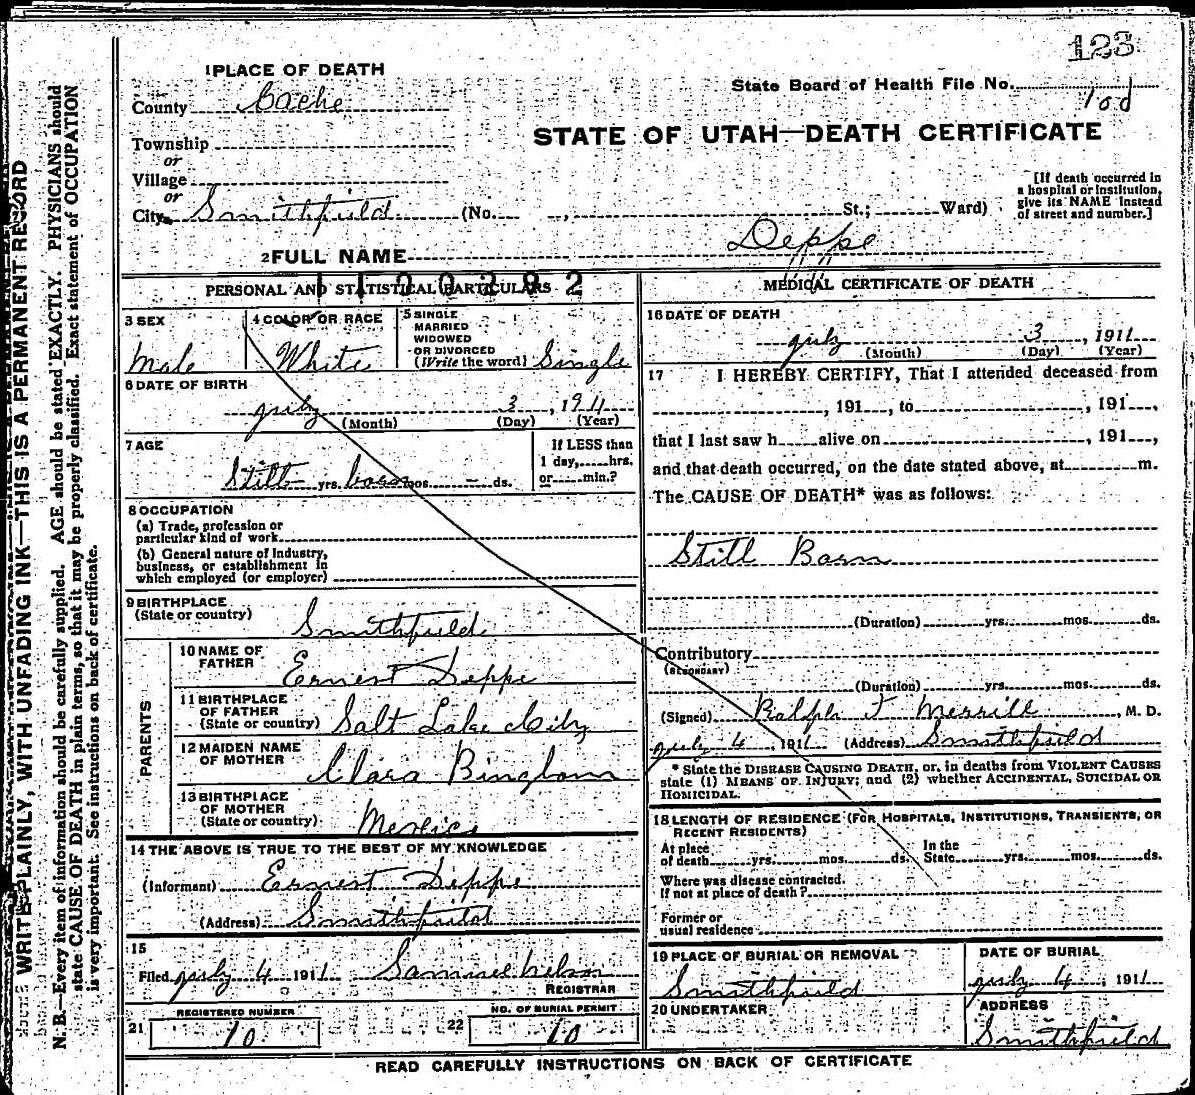 123
1 PLACE OF DEATH
State Board of Health File No.
County Cache
Township
STATE OF UTAH—DEATH CERTIFICATE
or
Village
or
City Smithfield (No. , St.; Ward)
[If death occurred in a hospital or institution, give its NAME instead of street and number.]
2 FULL NAME Deppe
PERSONAL AND STATISTICAL PARTICULARS
3 SEX
Male
4 COLOR OR RACE
White
5 SINGLE
MARRIED
WIDOWED
OR DIVORCED
(Write the word) Single
6 DATE OF BIRTH
July 3, 1911
(Month) (Day) (Year)
7 AGE
Still yrs. born mos. — ds.
If LESS than
1 day, hrs.
or min.?
8 OCCUPATION
(a) Trade, profession or
particular kind of work
(b) General nature of industry,
business, or establishment in
which employed (or employer)
9 BIRTHPLACE
(State or country) Smithfield
PARENTS
10 NAME OF
FATHER Ernest Deppe
11 BIRTHPLACE
OF FATHER
(State or country) Salt Lake City
12 MAIDEN NAME
OF MOTHER Clara Bingham
13 BIRTHPLACE
OF MOTHER
(State or country) Mexico
14 THE ABOVE IS TRUE TO THE BEST OF MY KNOWLEDGE
(Informant) Ernest Deppe
(Address) Smithfield
15
Filed July 4 1911 Samuel Nelson
REGISTRAR
21 REGISTERED NUMBER
10
22 NO. OF BURIAL PERMIT
10
MEDICAL CERTIFICATE OF DEATH
16 DATE OF DEATH
July 3, 1911
(Month) (Day) (Year)
17 I HEREBY CERTIFY, That I attended deceased from
, 191 , to , 191 ,
that I last saw h alive on , 191 ,
and that death occurred, on the date stated above, at m.
The CAUSE OF DEATH* was as follows:
Still Born
(Duration) yrs. mos. ds.
Contributory
(SECONDARY)
(Duration) yrs. mos. ds.
(Signed) Ralph T Merrill, M. D.
July 4, 1911 (Address) Smithfield
* State the DISEASE CAUSING DEATH, or, in deaths from VIOLENT CAUSES
state (1) MEANS OF INJURY; and (2) whether ACCIDENTAL, SUICIDAL OR
HOMICIDAL.
18 LENGTH OF RESIDENCE (FOR HOSPITALS, INSTITUTIONS, TRANSIENTS, OR
RECENT RESIDENTS)
At place
of death yrs. mos. ds. In the
State yrs. mos. ds.
Where was disease contracted,
If not at place of death?
Former or
usual residence
19 PLACE OF BURIAL OR REMOVAL
Smithfield
DATE OF BURIAL
July 4, 1911
20 UNDERTAKER
ADDRESS
Smithfield
READ CAREFULLY INSTRUCTIONS ON BACK OF CERTIFICATE
WRITE PLAINLY, WITH UNFADING INK—THIS IS A PERMANENT RECORD
N. B.—Every item of information should be carefully supplied. AGE should be stated EXACTLY. PHYSICIANS should
state CAUSE OF DEATH in plain terms, so that it may be properly classified. Exact statement of OCCUPATION
is very important. See instructions on back of certificate.